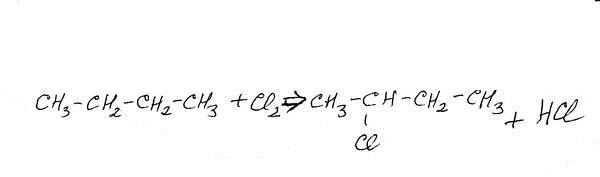 CH₃-CH₂-CH₂-CH₃ + Cl₂ ⇒ CH₃-CH-CH₂-CH₃ + HCl
Cl